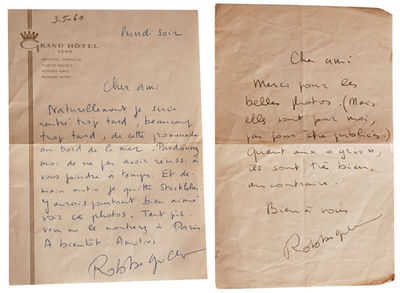 3.5.60
GRAND HÔTEL
lundi soir
Cher ami
Naturellement je suis
rentré trop tard, beaucoup
trop tard, de cette promenade
au bord de la mer. Pardonnez
moi de ne pas avoir réussi à
vous joindre à temps. Et de-
main matin je quitte Stockholm.
J'aurais pourtant bien aimé
voir ces photos. Tant pis.
vous me les montrerez à Paris.
A bientôt. Amitiés
Robbe-Grillet
Cher ami
Merci pour les
belles photos. (Mais,
elles sont pour moi,
pas pour être publiées)
Quant aux « gris »,
ils sont très bien,
au contraire.
Bien à vous
Robbe-Grillet